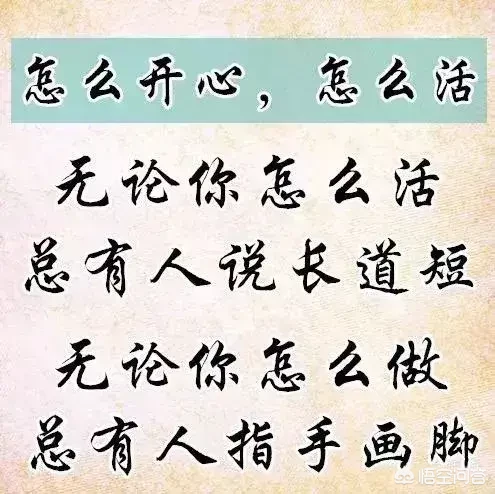 怎么开心，怎么活
无论你怎么活
总有人说长道短
无论你怎么做
总有人指手画脚
悟空问答